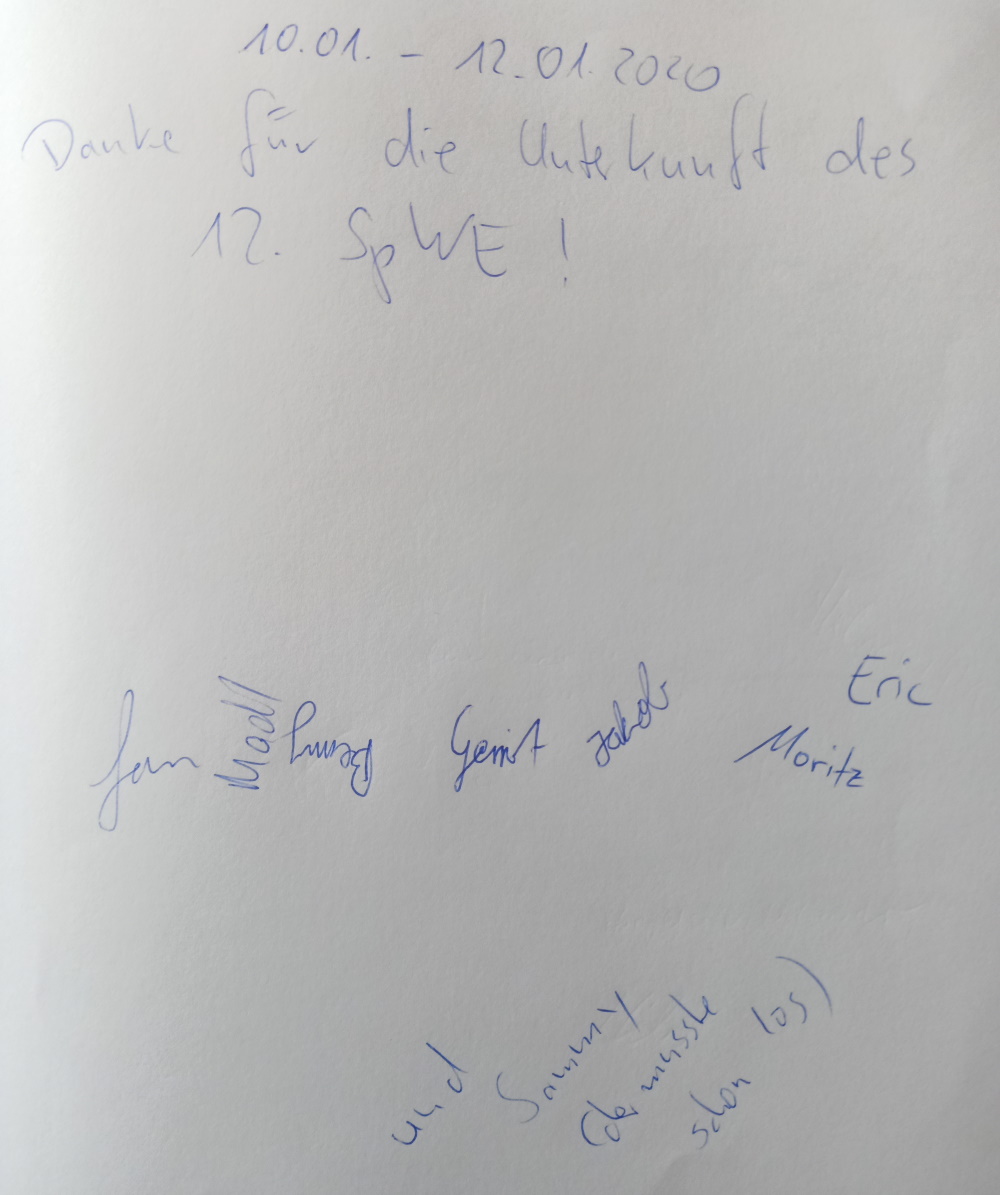 10.01. - 12.01.2020
Danke für die Unterkunft des
12. SpWE!
Eric
Jan Madl Benny Gerrit Jakob Moritz
und Sammy
(der musste
schon los)